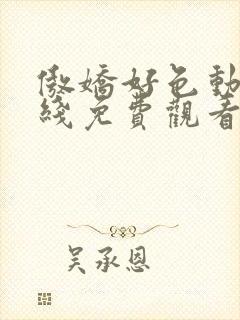 傲嬌好色動
綫免費觀看
吴承恩